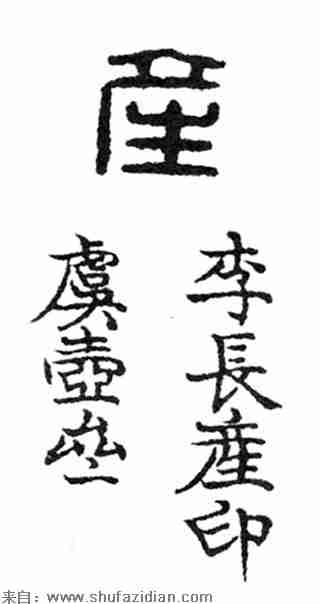 產
李長產印
虞壺
来自：www.shufazidian.com